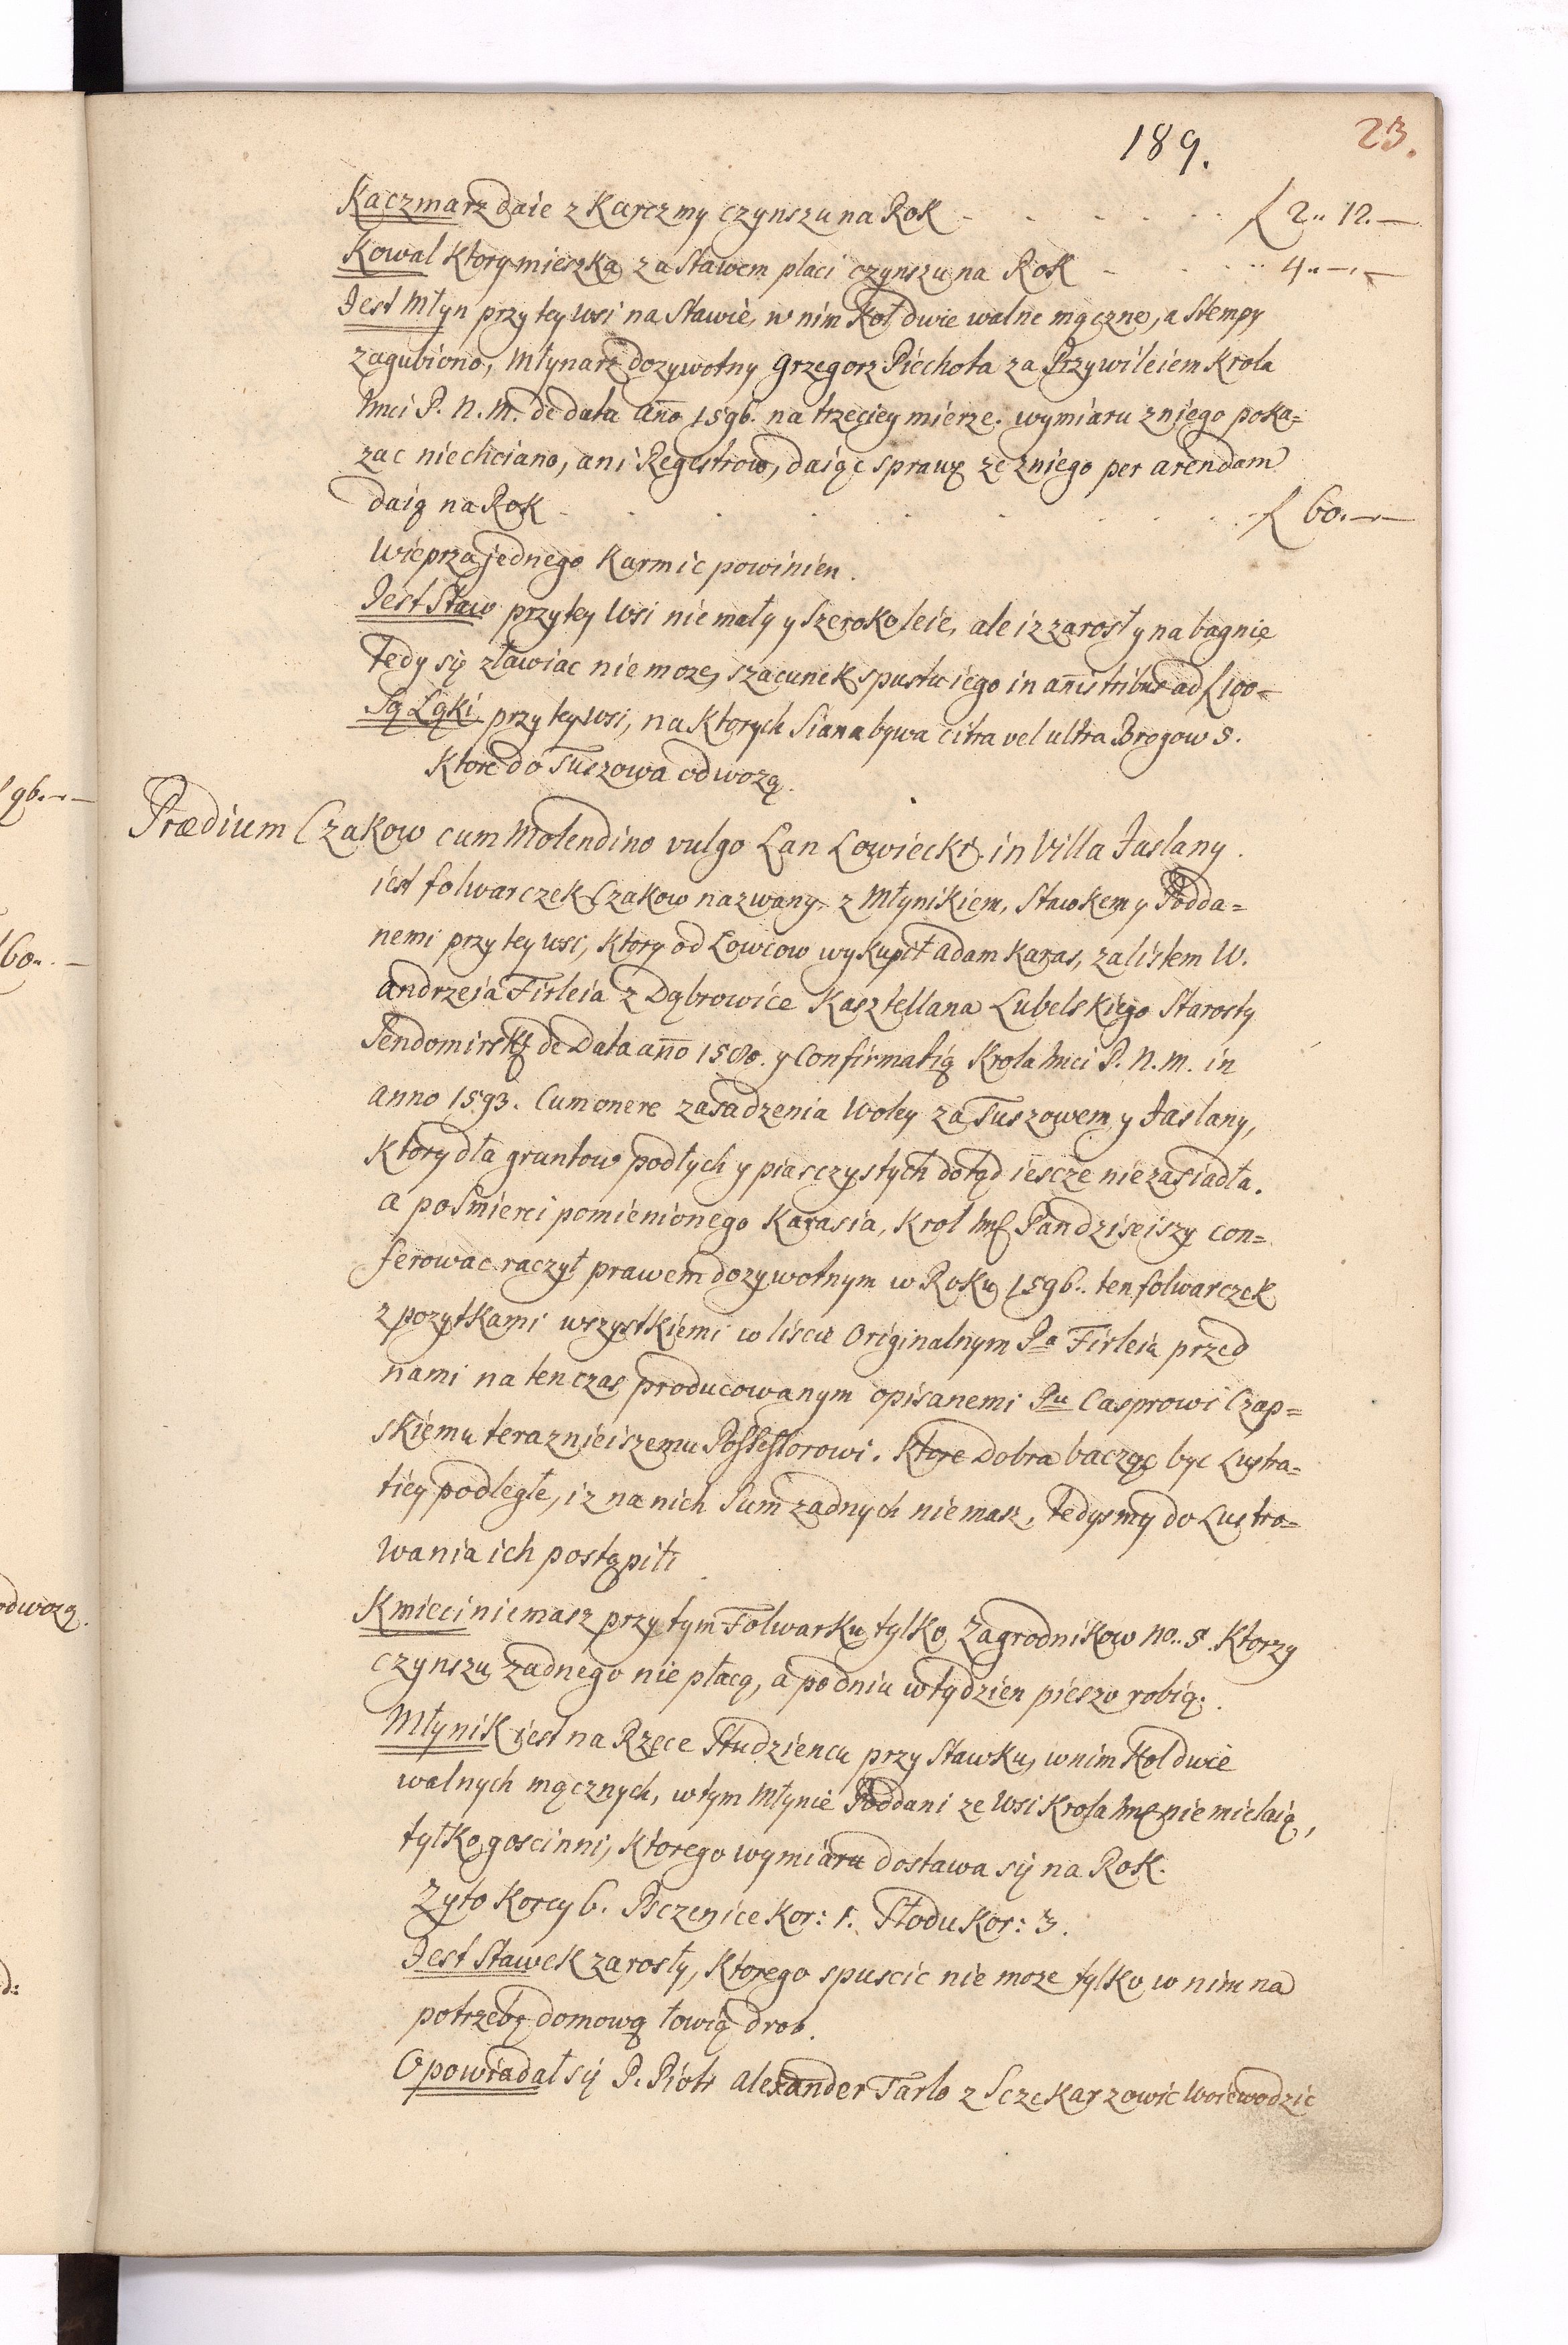 189.
23.
Kaczmarz daie z Karczmy czynszu na Rok f 2.. 12.—
Kowal ktory mieszka za Stawem placi czynszu na Rok 4..—.—
Jest Młyn przy tey Wsi na Stawie, w nim Koł dwie walne mączne, a Stempy
zagubiono, Młynarz dozywotny Grzegorz Piechota za Przywileiem Krola
Jmci P. N. M. de data año 1596. na trzeciey mierze. wymiaru z niego poka=
zac niechciano, ani Regestrow, daiąc sprawę ze z niego per arendam
daią na Rok f 60.—
Wieprza jednego Karmic powinien.
Jest Staw przy tey Wsi nie mały y Szeroko leie, ale iz zarosły na bagnie
tedy się zławiac nie moze, szacunek spustu iego in añis tribus ad f 100=
Są Łąki przy tey Wsi, na Ktorych Siana bywa citra vel ultra Brogow 5.
Ktore do Tuszowa odwozą.
Prædium Czakow cum Molendino vulgo Łan Łowiecki in Villa Jaslany.
iest folwarczek Czakow nazwany z Młynikiem, Stawkem y Podda=
nemi przy tey wsi, Ktory od Łowcow wykupił Adam Karas, za listem W.
Andrzeja Firleia z Dąbrowice Kasztellana Lubelskiego Starosty
Sendomirskg de Data año 1580. y Confirmatią Krola Jmci P. N. M. in
anno 1593. Cum onere zasadzenia Woley za Tuszowem y Jaslany,
Ktory dla gruntow podłych y piasczystych dotąd iescze nie zasiadła.
a po Smierci pomienionego Karasia, Krol Jmć Pan dziseiszy con=
ferowac raczył prawem dozywotnym w Roku 1596.. ten folwarczek
z pozytkami wszystkiemi w liscie Originalnym Pa Firleia przed
nami na ten czas producowanym opisanemi Pu Casprowi Czap=
skiemu teraznieiszemu Possessorowi. Ktore Dobra bacząc byc Lustra=
tiey podległe, iz na nich Sum zadnych niemasz, tedysmy do Lustro=
wania ich postąpili
Kmieci niemasz przy tym Folwarku tylko Zagrodnikow No.. 5. Ktorzy
czynszu zadnego nie płacą, a po dniu w tydzien pieszo robią.
Młynik iest na Rzece Studziencu przy Stawku, w nim Kol dwie
walnych mącznych, w tym Młynie Poddani ze Wsi Krola Jmć nie mielaią,
tylko goscinni, Ktorego wymiaru dostawa się na Rok.
Zyto Korcy 6. Psczenice Kor: 1. Słodu Kor: 3.
Jest Stawek zarosły, Ktorego spuscic nie moze tylko w nim na
potrzebę domową łowią drob.
Opowiadał się P. Piotr Alexander Tarlo z Sczekarzowic Woiewodzic
96.—
60..—
odwozą.
d: